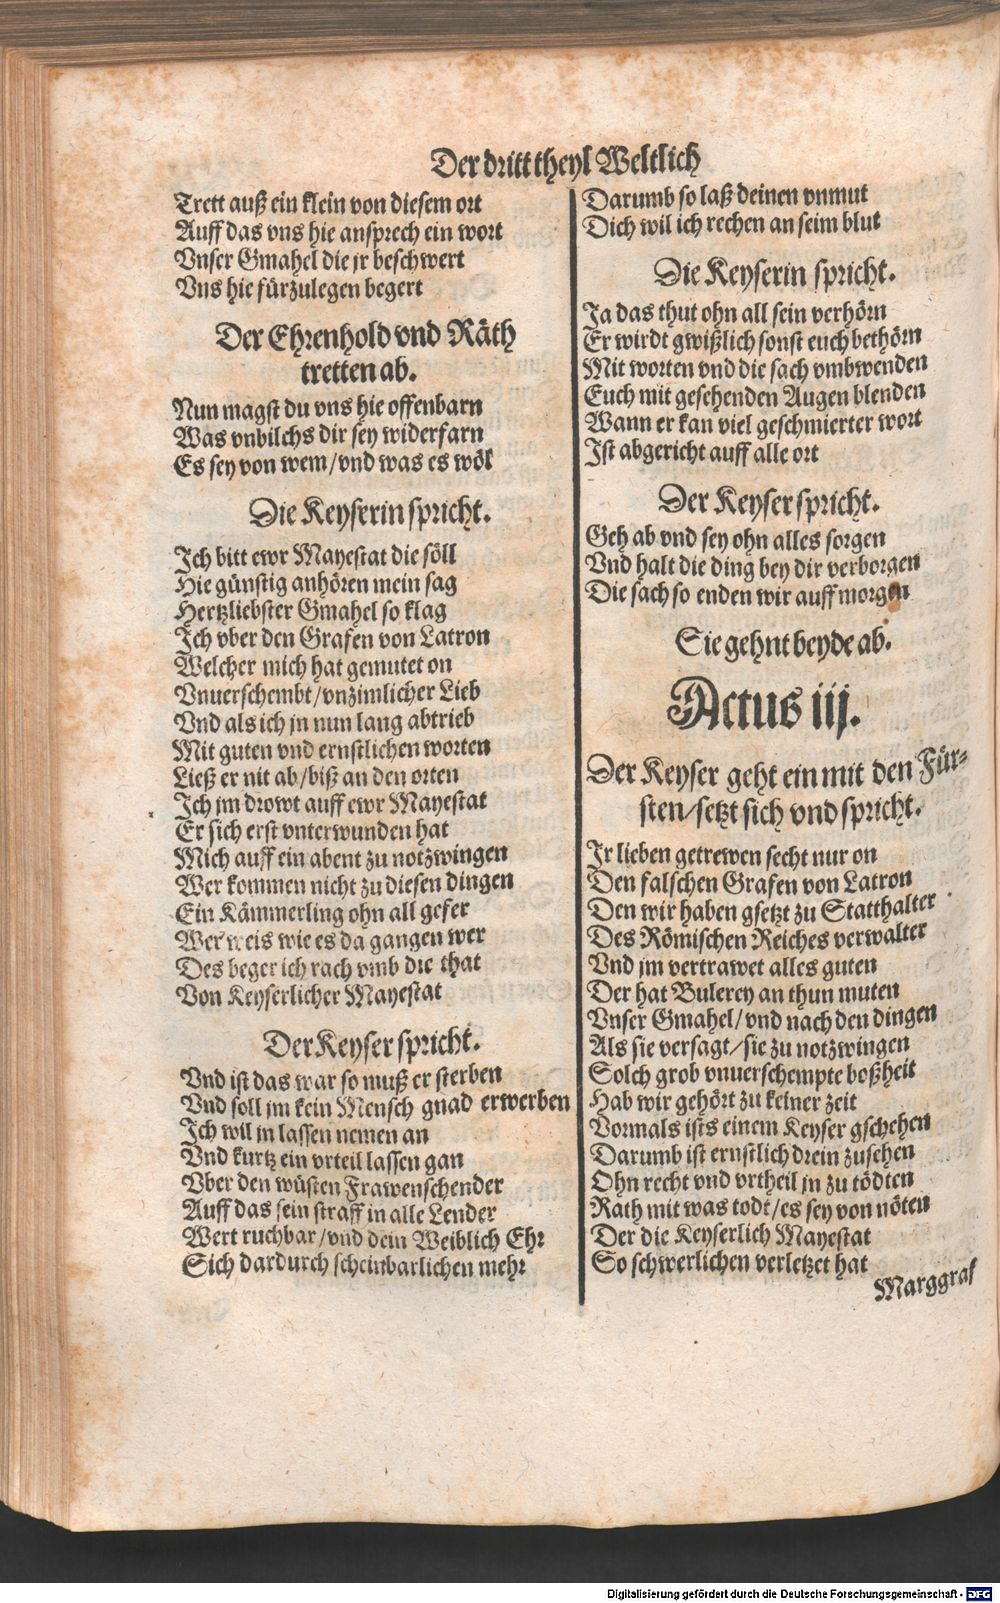 Der dritt theyl Weltlich
Trett auß ein klein von diesem ort
Auff das vns hie ansprech ein wort
Vnser Gmahel die jr beschwert
Vns hie fürzulegen begert
Der Ehrenhold vnd Räth
tretten ab.
Nun magst du vns hie offenbarn
Was vnbilchs dir sey widerfarn
Es sey von wem/vnd was es wöl
Die Keyserin spricht.
Ich bitt ewr Mayestat die söll
Hie günstig anhören mein sag
Hertzliebster Gmahel so klag
Ich vber den Grafen von Latron
Welcher mich hat gemutet on
Vnuerschembt/vnzimlicher Lieb
Vnd als ich jn nun lang abtrieb
Mit guten vnd ernstlichen worten
Ließ er nit ab/biß an den orten
Ich jm drowt auff ewr Mayestat
Er sich erst vnterwunden hat
Mich auff ein abent zu notzwingen
Wer kommen nicht zu diesen dingen
Ein Kämmerling ohn all gefer
Wer weis wie es da gangen wer
Des beger ich rach vmb die that
Von Keyserlicher Mayestat
Der Keyser spricht.
Vnd ist das war so muß er sterben
Vnd soll jm kein Mensch gnad erwerben
Ich wil jn lassen nemen an
Vnd kurtz ein vrteil lassen gan
Vber den wüsten Frawenschender
Auff das sein straff in alle Lender
Wert ruchbar/vnd dein Weiblich Ehr
Sich dardurch scheinbarlichen mehr
Darumb so laß deinen vnmut
Dich wil ich rechen an seim blut
Die Keyserin spricht.
Ja das thut ohn all sein verhörn
Er wirdt gwißlich sonst euch bethörn
Mit worten vnd die sach vmbwenden
Euch mit gesehenden Augen blenden
Wann er kan viel geschmierter wort
Ist abgericht auff alle ort
Der Keyser spricht.
Geh ab vnd sey ohn alles sorgen
Vnd halt die ding bey dir verborgen
Die sach so enden wir auff morgen
Sie gehnt beyde ab.
Actus iij.
Der Keyser geht ein mit den Für-
sten/setzt sich vnd spricht.
Jr lieben getrewen secht nur on
Den falschen Grafen von Latron
Den wir haben gsetzt zu Statthalter
Des Römischen Reiches verwalter
Vnd jm vertrawet alles guten
Der hat Bulerey an thun muten
Vnser Gmahel/vnd nach den dingen
Als sie versagt/sie zu notzwingen
Solch grob vnuerschempte boßheit
Hab wir gehört zu keiner zeit
Vormals ists einem Keyser gschehen
Darumb ist ernstlich drein zusehen
Ohn recht vnd vrtheil jn zu tödten
Rath mit was todt/es sey von nöten
Der die Keyserlich Mayestat
So schwerlichen verletzet hat
Marggraf
Digitalisierung gefördert durch die Deutsche Forschungsgemeinschaft - DFG